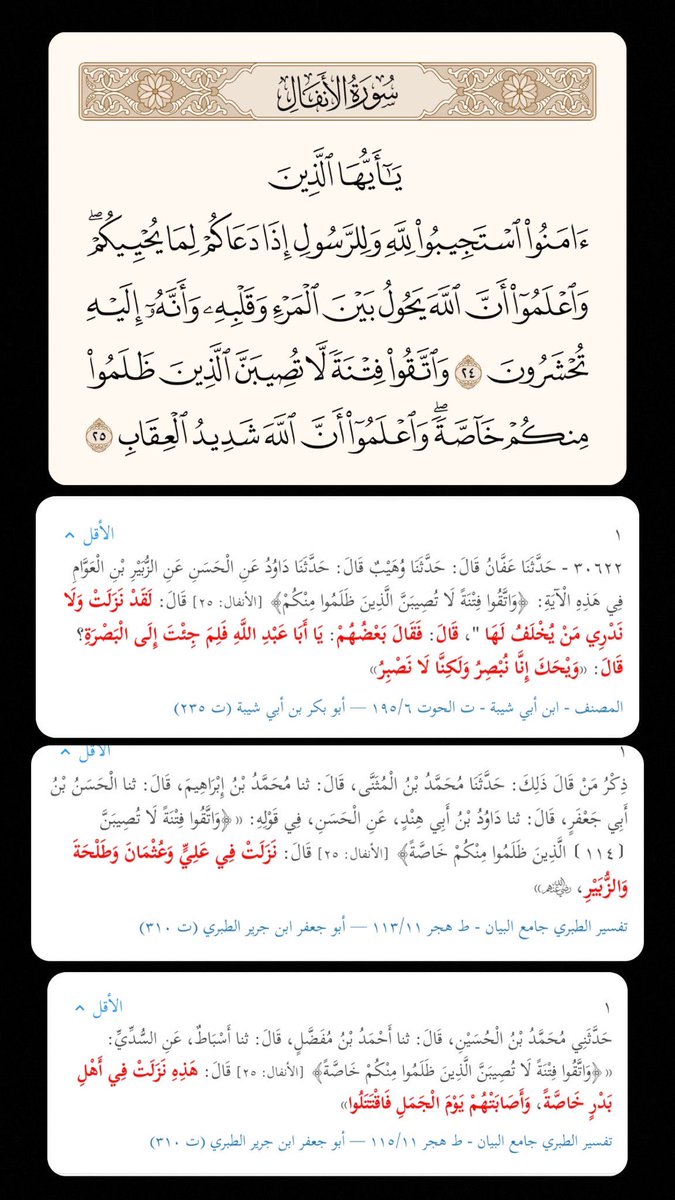 سُورَةُ الأَنفَالِ
يَـٰٓأَيُّهَا ٱلَّذِينَ
ءَامَنُواْ ٱسۡتَجِيبُواْ لِلَّهِ وَلِلرَّسُولِ إِذَا دَعَاكُمۡ لِمَا يُحۡيِيكُمۡۖ
وَٱعۡلَمُوٓاْ أَنَّ ٱللَّهَ يَحُولُ بَيۡنَ ٱلۡمَرۡءِ وَقَلۡبِهِۦ وَأَنَّهُۥٓ إِلَيۡهِ
تُحۡشَرُونَ ٢٤ وَٱتَّقُواْ فِتۡنَةٗ لَّا تُصِيبَنَّ ٱلَّذِينَ ظَلَمُواْ
مِنكُمۡ خَآصَّةٗۖ وَٱعۡلَمُوٓاْ أَنَّ ٱللَّهَ شَدِيدُ ٱلۡعِقَابِ ٢٥
١ الأقل
٣٠٦٢٢ - حَدَّثَنَا عَفَّانُ قَالَ: حَدَّثَنَا وُهَيْبٌ قَالَ: حَدَّثَنَا دَاوُدُ عَنِ الْحَسَنِ عَنِ الزُّبَيْرِ بْنِ الْعَوَّامِ
فِي هَذِهِ الْآيَةِ: ﴿وَاتَّقُوا فِتْنَةً لَا تُصِيبَنَّ الَّذِينَ ظَلَمُوا مِنْكُمْ﴾ [الأنفال: ٢٥] قَالَ: لَقَدْ نَزَلَتْ وَلَا
نَدْرِي مَنْ يُخْلَفُ لَهَا "، قَالَ: فَقَالَ بَعْضُهُمْ: يَا أَبَا عَبْدِ اللَّهِ فَلِمَ جِئْتَ إِلَى الْبَصْرَةِ؟
قَالَ: «وَيْحَكَ إِنَّا نُبْصِرُ وَلَكِنَّا لَا نَصْبِرُ»
المصنف - ابن أبي شيبة - ت الحوت ١٩٥/٦ — أبو بكر بن أبي شيبة (ت ٢٣٥)
١ الأقل
ذِكْرُ مَنْ قَالَ ذَلِكَ: حَدَّثَنَا مُحَمَّدُ بْنُ الْمُثَنَّى، قَالَ: ثنا مُحَمَّدُ بْنُ إِبْرَاهِيمَ، قَالَ: ثنا الْحَسَنُ بْنُ
أَبِي جَعْفَرٍ، قَالَ: ثنا دَاوُدُ بْنُ أَبِي هِنْدٍ، عَنِ الْحَسَنِ، فِي قَوْلِهِ: «﴿وَاتَّقُوا فِتْنَةً لَا تُصِيبَنَّ
(١١٤) الَّذِينَ ظَلَمُوا مِنْكُمْ خَاصَّةً﴾ [الأنفال: ٢٥] قَالَ: نَزَلَتْ فِي عَلِيٍّ وَعُثْمَانَ وَطَلْحَةَ
وَالزُّبَيْرِ، رضي الله عنهم»
تفسير الطبري جامع البيان - ط هجر ١١٣/١١ — أبو جعفر ابن جرير الطبري (ت ٣١٠)
١ الأقل
حَدَّثَنِي مُحَمَّدُ بْنُ الْحُسَيْنِ، قَالَ: ثنا أَحْمَدُ بْنُ مُفَضَّلٍ، قَالَ: ثنا أَسْبَاطٌ، عَنِ السُّدِّيِّ:
«﴿وَاتَّقُوا فِتْنَةً لَا تُصِيبَنَّ الَّذِينَ ظَلَمُوا مِنْكُمْ خَاصَّةً﴾ [الأنفال: ٢٥] قَالَ: هَذِهِ نَزَلَتْ فِي أَهْلِ
بَدْرٍ خَاصَّةً، وَأَصَابَتْهُمْ يَوْمَ الْجَمَلِ فَاقْتَتَلُوا»
تفسير الطبري جامع البيان - ط هجر ١١٥/١١ — أبو جعفر ابن جرير الطبري (ت ٣١٠)